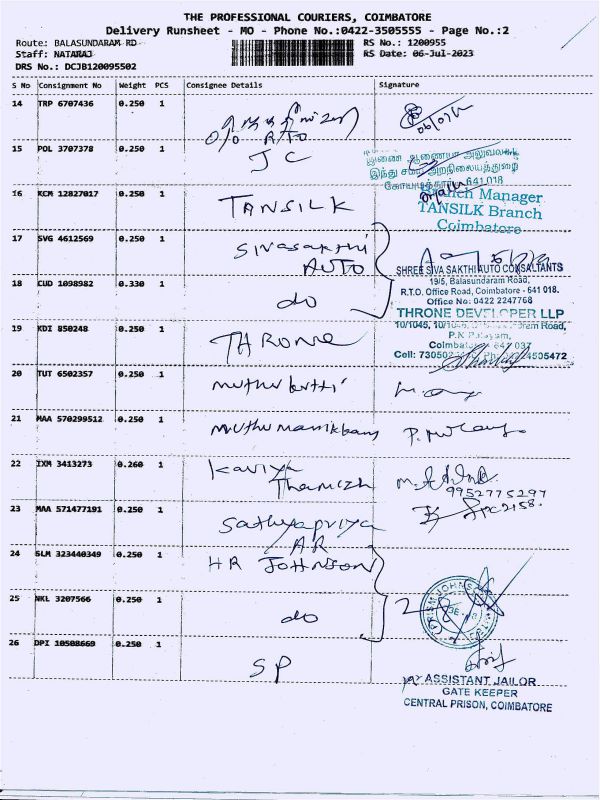 THE PROFESSIONAL COURIERS, COIMBATORE
Delivery Runsheet - MO - Phone No.:0422-3505555 - Page No.:2
Route: BALASUNDARAM RD
RS No.: 1200955
Staff: NATARAJ
RS Date: 06-Jul-2023
DRS No.: DCJB120095502
S No Consignment No Weight PCS Consignee Details Signature
14 TRP 6707436 0.250 1
O/O RTO
15 POL 3707378 0.250 1 JC
இணை ஆணையர் அலுவலகம்
இந்து சமய அறநிலையத்துறை
கோயமுத்தூர் 641 018
16 KCM 12827017 0.250 1 TANSILK
Branch Manager
TANSILK Branch
Coimbatore
17 SVG 4612569 0.250 1 SIVASAKTHI AUTO
SHREE SIVA SAKTHI AUTO CONSULTANTS
19/5, Balasundaram Road,
R.T.O. Office Road, Coimbatore - 641 018.
Office No: 0422 2247768
18 CUD 1098982 0.330 1 do
THRONE DEVELOPER LLP
10/1045,
Road,
P.N Palayam,
Coimbatore 641 037
Cell: 730502
4505472
19 KDI 850248 0.250 1 THRONE
20 TUT 6502357 0.250 1 muthu
21 MAA 570299512 0.250 1 muthu
22 IXM 3413273 0.260 1 Kaviya Thamizh
9952775297
23 MAA 571477191 0.250 1 Sathyapriya
PC2158.
AR
24 SLM 323440349 0.250 1 HR JOHNSON
25 NKL 3207566 0.250 1 do
2
PRISM JOHNSON
26 DPI 10508669 0.250 1 SP
ASSISTANT JAILOR
GATE KEEPER
CENTRAL PRISON, COIMBATORE